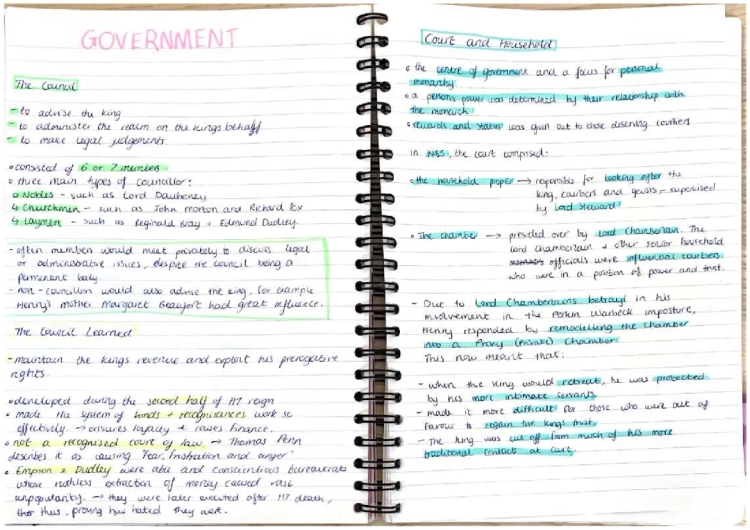 GOVERNMENT
The Council
- to advise the king
- to administer the realm on the kings behalf
- to make legal judgements.
• consisted of 6 or 7 members
• three main types of councillor:
↳ Nobles - such as Lord Daubeney
↳ Churchmen - such as John Morton and Richard Fox
↳ Laymen - such as Reginald Bray + Edmund Dudley.
- often members would meet privately to discuss legal
or administrative issues, despite the council being a
permanent body
- non-councillors would also advise the king, for example
Henry's mother Margaret Beaufort had great influence.
The Council Learned
- maintain the kings revenue and exploit his prerogative
rights.
• developed during the second half of H7 reign
• made the system of bonds + recognisances work so
effectively. → ensures loyalty + raises finance.
• not a recognised court of law. → Thomas Penn
describes it as causing 'fear, frustration and anger'
• Empson + Dudley were able and conscientious bureaucrats
whose ruthless extraction of money caused vast
unpopularity. → they were later executed after H7 death,
thus, proving how hated they were.
Court and Household
• the centre of government and a focus for personal
monarchy.
• a persons power was determined by their relationship with
the monarch
• rewards and status was given out to those deserving courtiers
In 1485, the court comprised:
• the household proper → responsible for looking after the
king, courtiers and guests - supervised
by Lord Steward
• The chamber → presided over by Lord Chamberlain. The
lord chamberlain + other senior household
officials were influential courtiers
who were in a position of power and trust.
- Due to Lord Chamberlains betrayl in his
involvement in the Perkin Warbeck imposture,
Henry responded by remodelling the Chamber
into a Privy (private) Chamber.
This now meant that:
- when the King would retreat, he was protected
by his more intimate servants.
- made it more difficult for those who were out of
favour to regain the kings trust.
- The king was cut off from much of his more
traditional contacts at court.